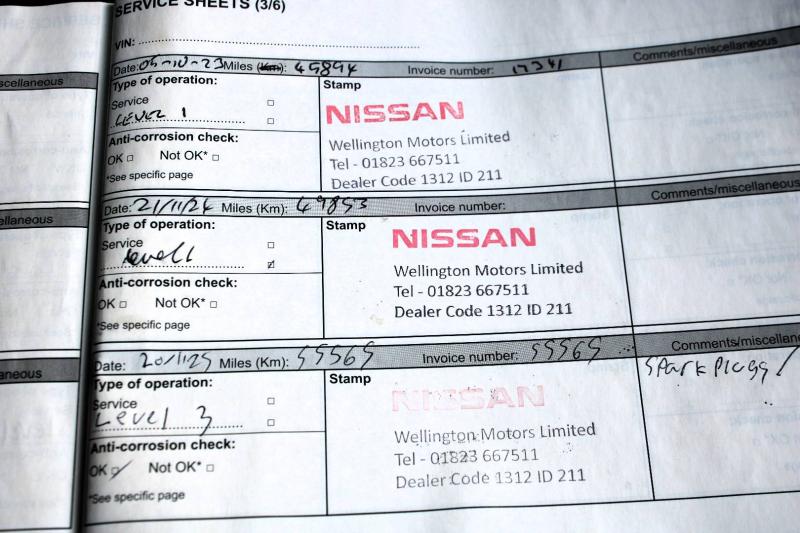 SERVICE SHEETS (3/6)
VIN:
Date: 05-10-23 Miles (Km): 45894 Invoice number: 17341 Comments/miscellaneous
Type of operation:
Service
LEVEL 1
Anti-corrosion check:
OK Not OK*
*See specific page
Stamp
NISSAN
Wellington Motors Limited
Tel - 01823 667511
Dealer Code 1312 ID 211
scellaneous
Date: 21/11/24 Miles (Km): 49853 Invoice number: Comments/miscellaneous
Type of operation:
Service
Level 1
Anti-corrosion check:
OK Not OK*
*See specific page
Stamp
NISSAN
Wellington Motors Limited
Tel - 01823 667511
Dealer Code 1312 ID 211
ellaneous
Date: 20/11/25 Miles (Km): 55565 Invoice number: 55565 Comments/miscellaneo
Type of operation:
Service
Level 3
Anti-corrosion check:
OK Not OK*
*See specific page
Stamp
NISSAN
Wellington Motors Limited
Tel - 01823 667511
Dealer Code 1312 ID 211
Spark plugg
aneous